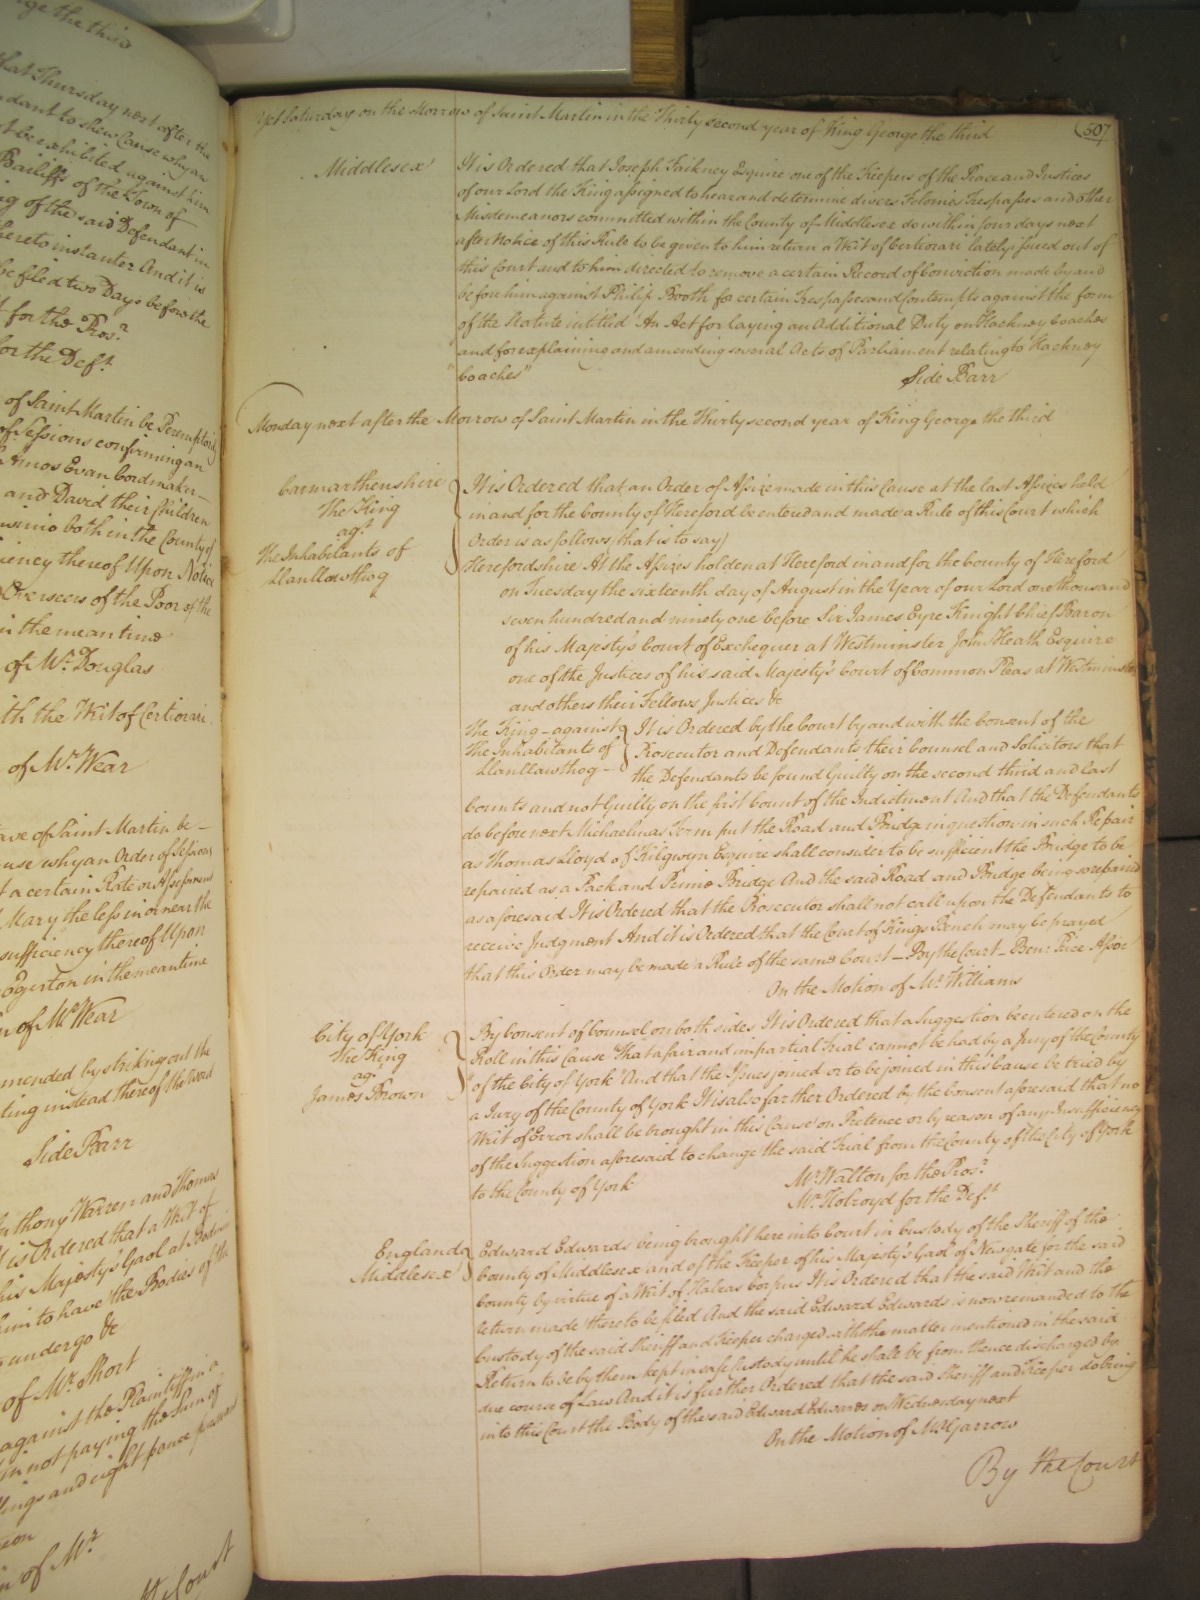 ge the third
that Thursday next after the
ndant to shew Cause why an
t be exhibited against him
Bailiffs of the Town of
g of the said Defendant in
hereto instanter And it is
be filed two Days before the
t for the Pros.r
for the Def.t
of Saint Martin be Peremptory
of Sessions confirming an
Amos Evan Cordmaker
and David their Children
both in the County of
iency thereof Upon Notice
Overseers of the Poor of the
in the mean time
of Mr. Douglas
ith the Writ of Certiorari
of Mr. Wear
ave of Saint Martin be
use why an Order of Sessions
t a certain Rate or Assessment
Mary the less in or near the
sufficiency thereof Upon
Egerton in the mean time
n of Mr. Wear
mended by striking out the
ting instead thereof the word
Side Barr
nthony Warren and Thomas
t is Ordered that a Writ of
his Majesty's Gaol at Bodmin
him to have the Bodies of the
undergo &c
of Mr. Short
against the Plaintiff in a
in not paying the Sum of
lings and eight pence pursuant
n of Mr.
the Court
507
Yet Saturday on the Morrow of Saint Martin in the Thirty second year of King George the third
Middlesex
It is Ordered that Joseph Faikney Esquire one of the Keepers of the Peace and Justices
of our Lord the King assigned to hear and determine divers Felonies Trespasses and other
Misdemeanors committed within the County of Middlesex do within four days next
after Notice of this Rule to be given to him return a Writ of Certiorari lately issued out of
this Court and to him directed to remove a certain Record of Conviction made by and
before him against Philip Booth for certain Trespasses and Contempts against the form
of the Statute intitled "An Act for laying an Additional Duty on Hackney Coaches
and for explaining and amending several Acts of Parliament relating to Hackney
"Coaches"
Side Barr
Monday next after the Morrow of Saint Martin in the Thirty second year of King George the third
Carmarthenshire
The King
ag.t
The Inhabitants of
Llanllawthog
It is Ordered that an Order of Assize made in this Cause at the last Assizes held
in and for the County of Hereford be entered and made a Rule of this Court which
Order is as follows (that is to say)
Herefordshire At the Assizes holden at Hereford in and for the County of Hereford
on Tuesday the sixteenth day of August in the Year of our Lord one thousand
seven hundred and ninety one before Sir James Eyre Knight Chief Baron
of his Majesty's Court of Exchequer at Westminster John Heath Esquire
one of the Justices of his said Majesty's Court of Common Pleas at Westminster
and others their Fellows Justices &c
The King - against
The Inhabitants of
Llanllawthog -
It is Ordered by the Court by and with the Consent of the
Prosecutor and Defendants their Counsel and Solicitors that
the Defendants be found Guilty on the second third and last
Counts and not Guilty on the first Count of the Indictment And that the Defendants
do before next Michaelmas Term put the Road and Bridge in question in such Repair
as Thomas Lloyd of Kilgwyn Esquire shall consider to be sufficient the Bridge to be
repaired as a Pack and Prime Bridge And the said Road and Bridge being so repaired
as aforesaid It is Ordered that the Prosecutor shall not call upon the Defendants to
receive Judgment And it is Ordered that the Court of Kings Bench may be prayed
that this Order may be made a Rule of the same Court - By the Court - Ben: Price Assoc.
On the Motion of Mr. Williams
City of York
The King
ag.t
James Brown
By Consent of Counsel on both sides It is Ordered that a Suggestion be entered on the
Roll in this Cause "That a fair and impartial Trial cannot be had by a Jury of the County
"of the City of York" And that the Issues joined or to be joined in this Cause be tried by
a Jury of the County of York It is also farther Ordered by the Consent aforesaid that no
Writ of Error shall be brought in this Cause on Pretence or by reason of any Insufficiency
of the Suggestion aforesaid to change the said Trial from the County of the City of York
to the County of York
Mr. Walton for the Pros.r
Mr. Holroyd for the Def.t
England
Middlesex
Edward Edwards being brought here into Court in Custody of the Sheriff of the
County of Middlesex and of the Keeper of his Majesty's Gaol of Newgate for the said
County by virtue of a Writ of Habeas Corpus It is Ordered that the said Writ and the
Return made thereto be filed And the said Edward Edwards is now remanded to the
Custody of the said Sheriff and Keeper charged with the matter mentioned in the said
Return to be by them kept in safe Custody until he shall be from thence discharged by
due course of Law And it is further Ordered that the said Sheriff and Keeper do bring
into this Court the Body of the said Edward Edwards on Wednesday next
On the Motion of Mr. Garrow
By the Court